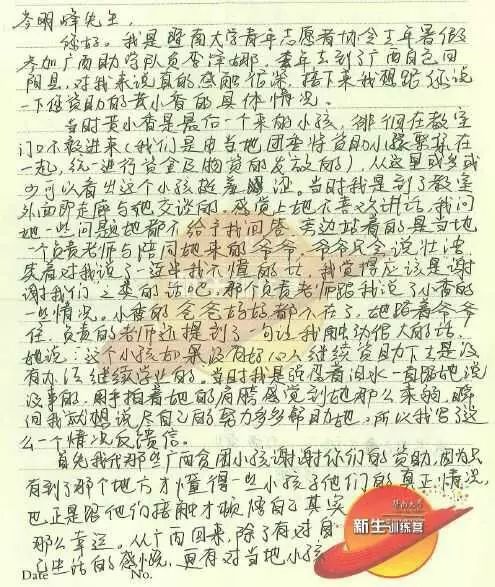 岑明峰先生:
您好。我是暨南大学青年志愿者协会去年暑假
参加广西助学队员李萍娜,去年去到了广西百色田
阳县,对我来说真的感触很深,接下来我想跟您说
一下您资助的黄小香的具体情况。
当时黄小香是最后一个来的小孩,徘徊在教室
门口不敢进来(我们是由当地团委将资助小孩聚集在
一起,统一进行资金及物资的发放的),从这里或多或
少可以看出这个小孩挺羞涩。当时我是到了教室
外面即走廊与她交谈的,感觉上她不喜欢讲话,我问
她一些问题她都不给予我回答,旁边站着的是当地
一个负责老师与陪同她来的爷爷,爷爷只会说壮语,
笑着对我说了一连串我不懂的话,我觉得应该是谢
谢我们之类的话吧,那个负责老师跟我说了小香的
一些情况。小香的爸爸妈妈都不在了,她跟着爷爷
住,负责的老师还提到了一句让我触动很大的话,
她说:这个小孩如果没有好心人继续资助下去是没
有办法继续学业的。当时我是强忍着泪水一直跟她说
没事的,用手拍着她的肩膀感觉到她那么来的,瞬
间我就想说尽自己的努力多多帮助她,所以我写了这
么一个情况反馈信。
首先我代那些广西贫困小孩谢谢你们的资助,因为只
有到了那个地方才懂得一些小孩子他们的真正情况,
也正是跟他们接触才顿悟自己其实
那么幸运。从广西回来,除了有对自
己生活的感慨,更有对当地小孩
Date No.
新生训练营